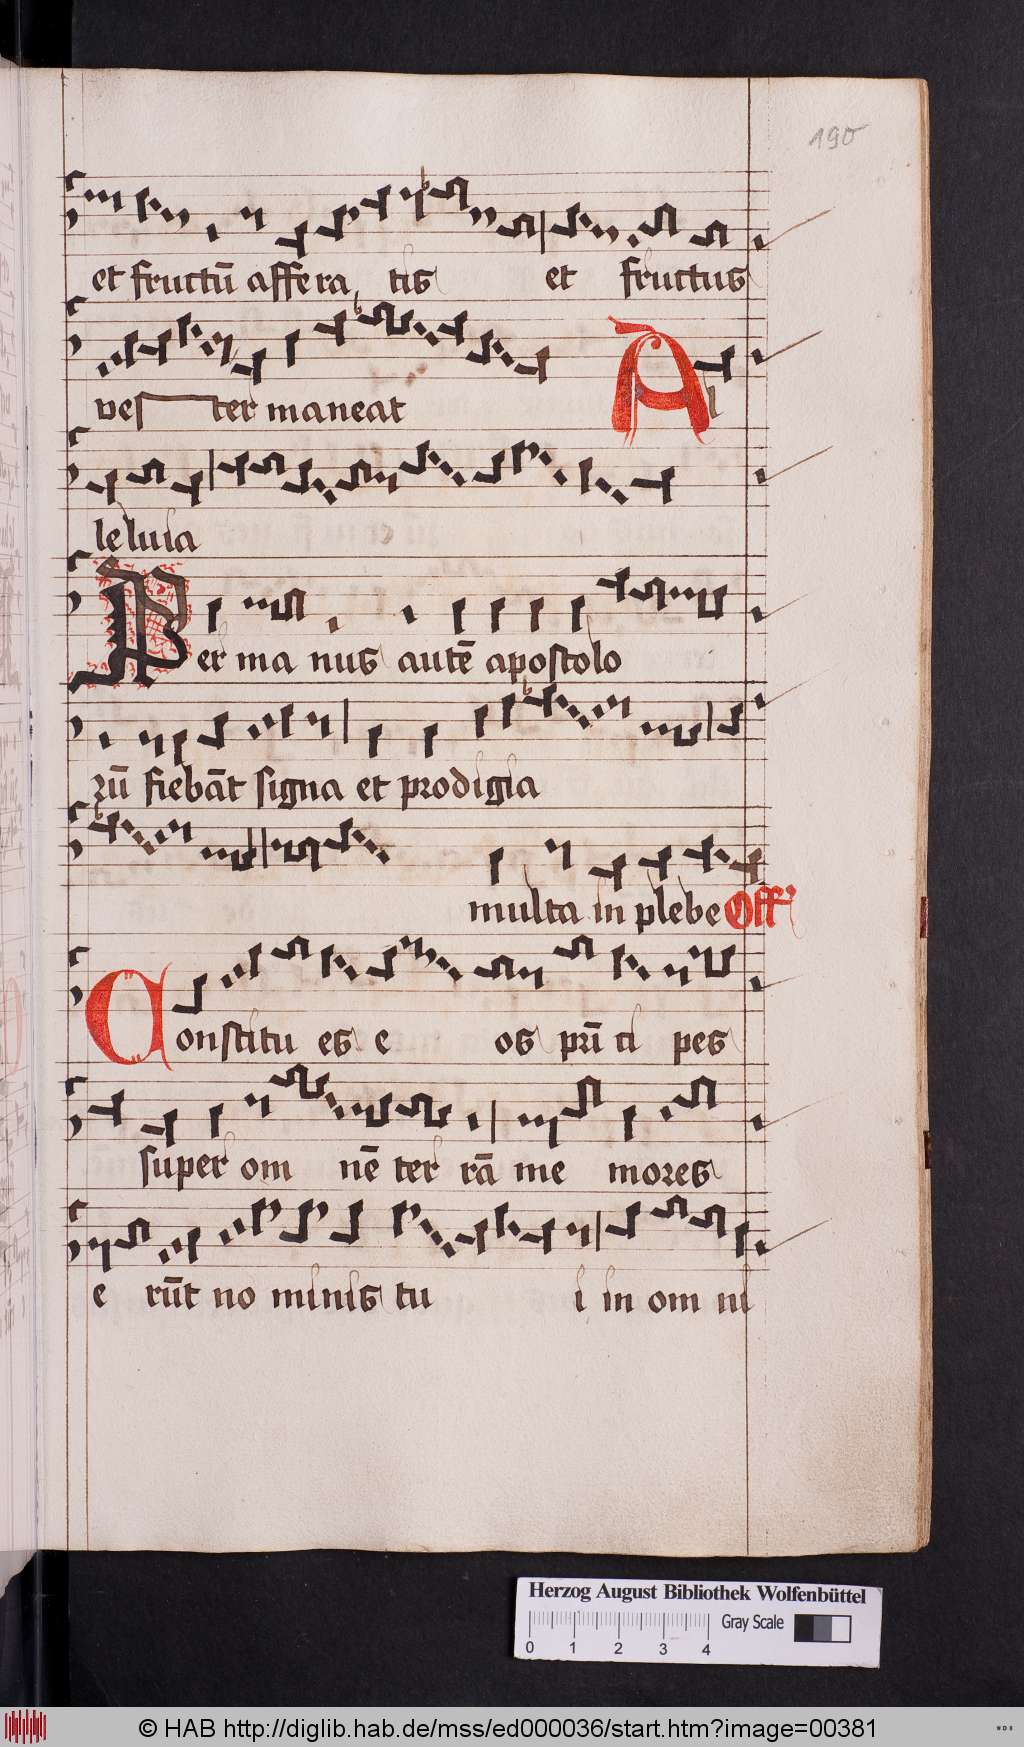 190
et fructū affera tis et fructus
vester maneat Al
leluia
Per manus autē apostolo
rū fiebāt signa et prodigia
multa in plebe Off
Constitu es e os prī ti pes
super om nē ter rā me mores
e rūt no minis tu i in om ni
Herzog August Bibliothek Wolfenbüttel
Gray Scale
0 1 2 3 4
© HAB http://diglib.hab.de/mss/ed000036/start.htm?image=00381